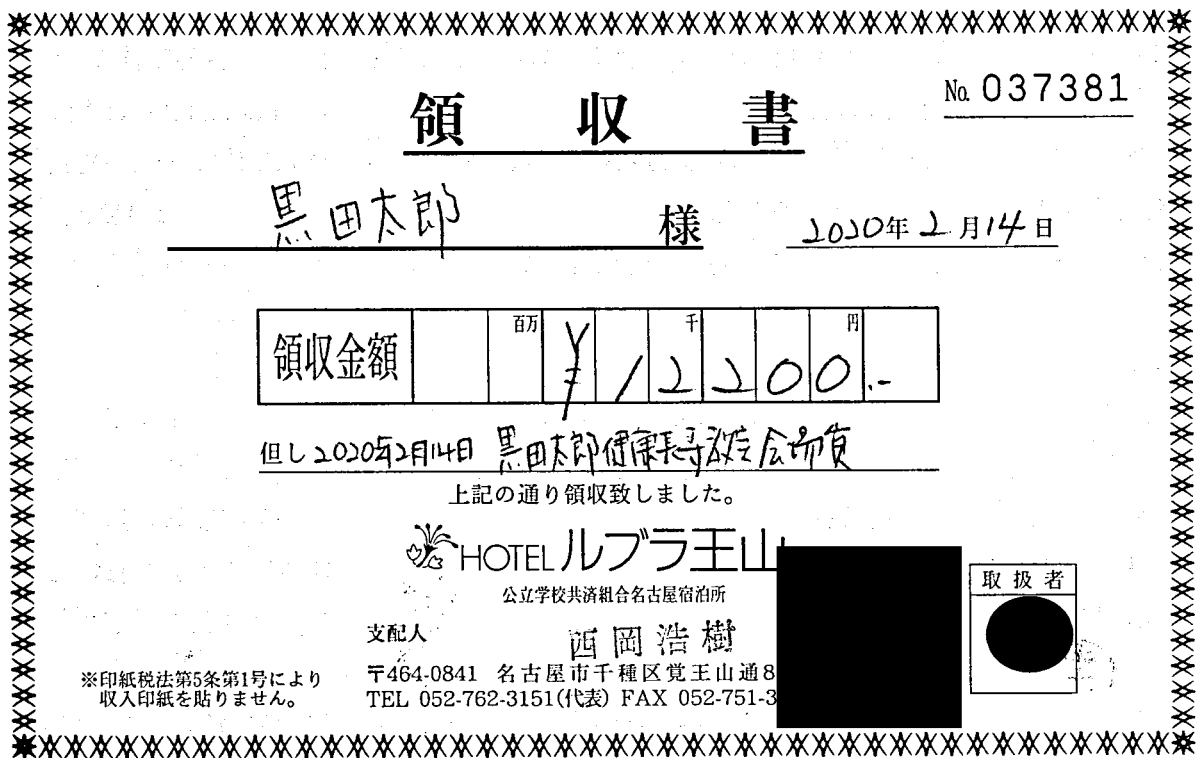 No. 037381
領収書
黒田太郎 様
2020年2月14日
領収金額 百万 千 円
¥12200.-
但し2020年2月14日 黒田太郎健康長寿教室会場費
上記の通り領収致しました。
HOTEL ルブラ王山
公立学校共済組合名古屋宿泊所
取扱者
支配人 西岡浩樹
〒464-0841 名古屋市千種区覚王山通8
TEL 052-762-3151(代表) FAX 052-751-3
※印紙税法第5条第1号により
収入印紙を貼りません。